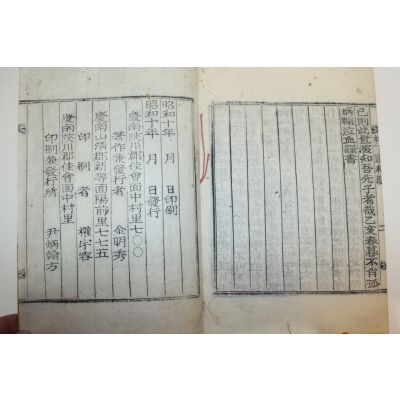 己則此豈波知吾先子者哉乙亥春暮不肖孤
炳翰泣血謹書
昭和十年 月 日印刷
昭和十年 月 日發行
慶南陜川郡佳會面中村里七〇〇
著作兼發行者 金明秀
慶南山淸郡新等面陽前里七七五
印刷者 權宇容
慶南陜川郡佳會面中村里
印刷兼發行所 尹炳翰方